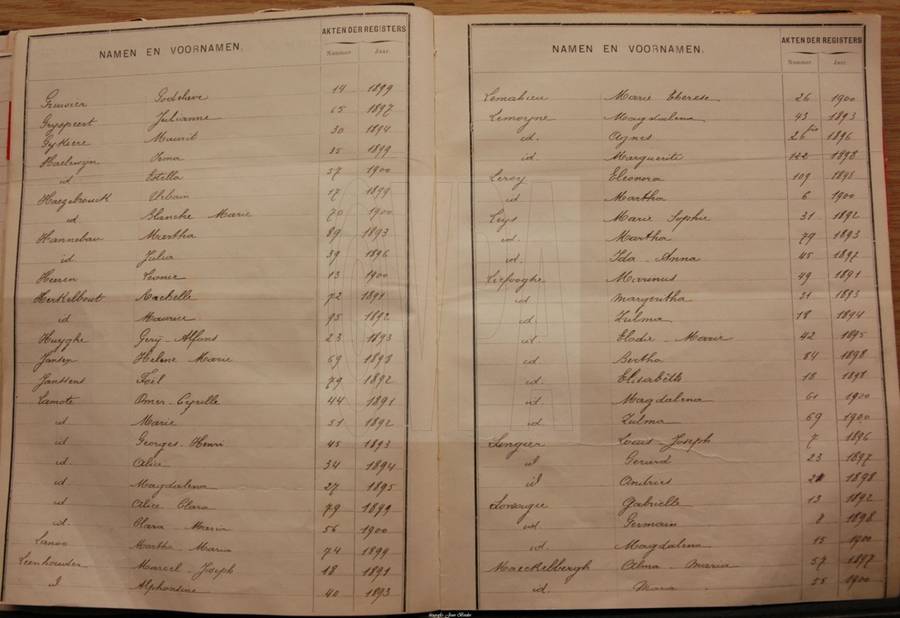 NAMEN EN VOORNAMEN. AKTEN DER REGISTERS
Nummer Jaar
Godelieve 14 1899
Gryspeert Julianne 65 1897
Gykiere Maurits 30 1894
Haelewyn Irma 25 1899
id Estella 57 1900
Haezebrouck Urbain 17 1899
id. Blanche Marie 70 1900
Hannebau Martha 89 1893
id Julia 39 1896
Heeren 13 1900
Herkelbout Rachelle 72 1891
id Maurice 95 1892
Huyghe Gery-Alfons 23 1893
Jansen Helene Marie 69 1898
Janssens 79 1892
Lamote Omer-Cyrille 44 1891
id Marie 51 1892
id Georges-Henri 45 1893
id. Alice 34 1894
id. Magdalena 27 1895
id Alice Clara 79 1899
id. Clara Maria 56 1900
Lanoo Martha Maria 74 1899
Leenhouder Marcel-Joseph 18 1891
id Alphonsine 40 1893
NAMEN EN VOORNAMEN. AKTEN DER REGISTERS
Nummer Jaar
Lemahieu Marie Therese 26 1900
Lemoyne Magdalena 43 1893
id. Agnes 26 bis 1896
id. Marguerite 122 1898
Leroy Eleonora 109
id Martha 6 1900
Leys Marie Sophie 31 1892
id. Martha 79 1893
id. Ida-Anna 45 1897
Liefooghe Marinus 49 1891
id Margeritha 31 1893
id. Zulma 18 1894
id Elodie-Marie 42 1895
id Bertha 84 1898
id. Elisabeth 18 1898
id Magdalena 61 1900
id Zulma 69 1900
Lingier Louis-Joseph 7 1896
id Gerard 23 1897
id Andries 1898
Gabrielle 13 1892
id Germain 8 1898
id. Magdalena 15 1900
Maeckelbergh Alma Maria 57 1897
id. 55 1900